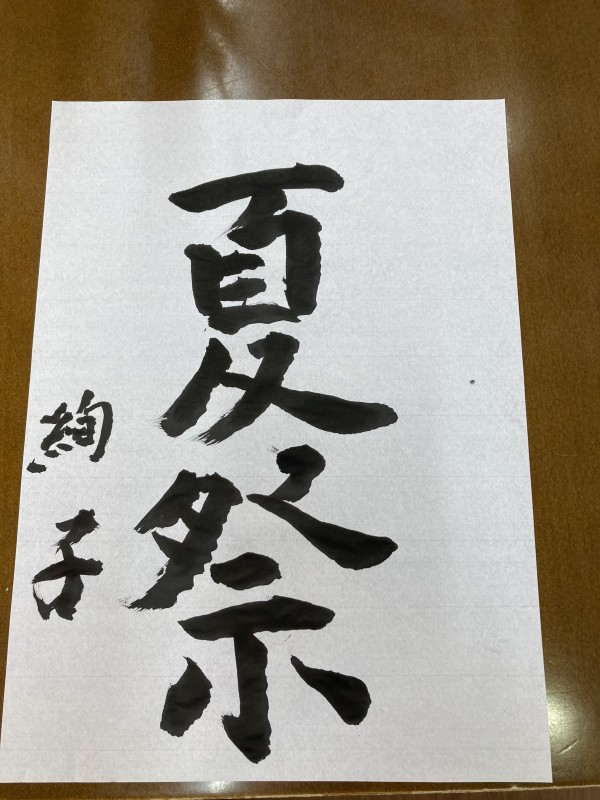 夏祭
絢子